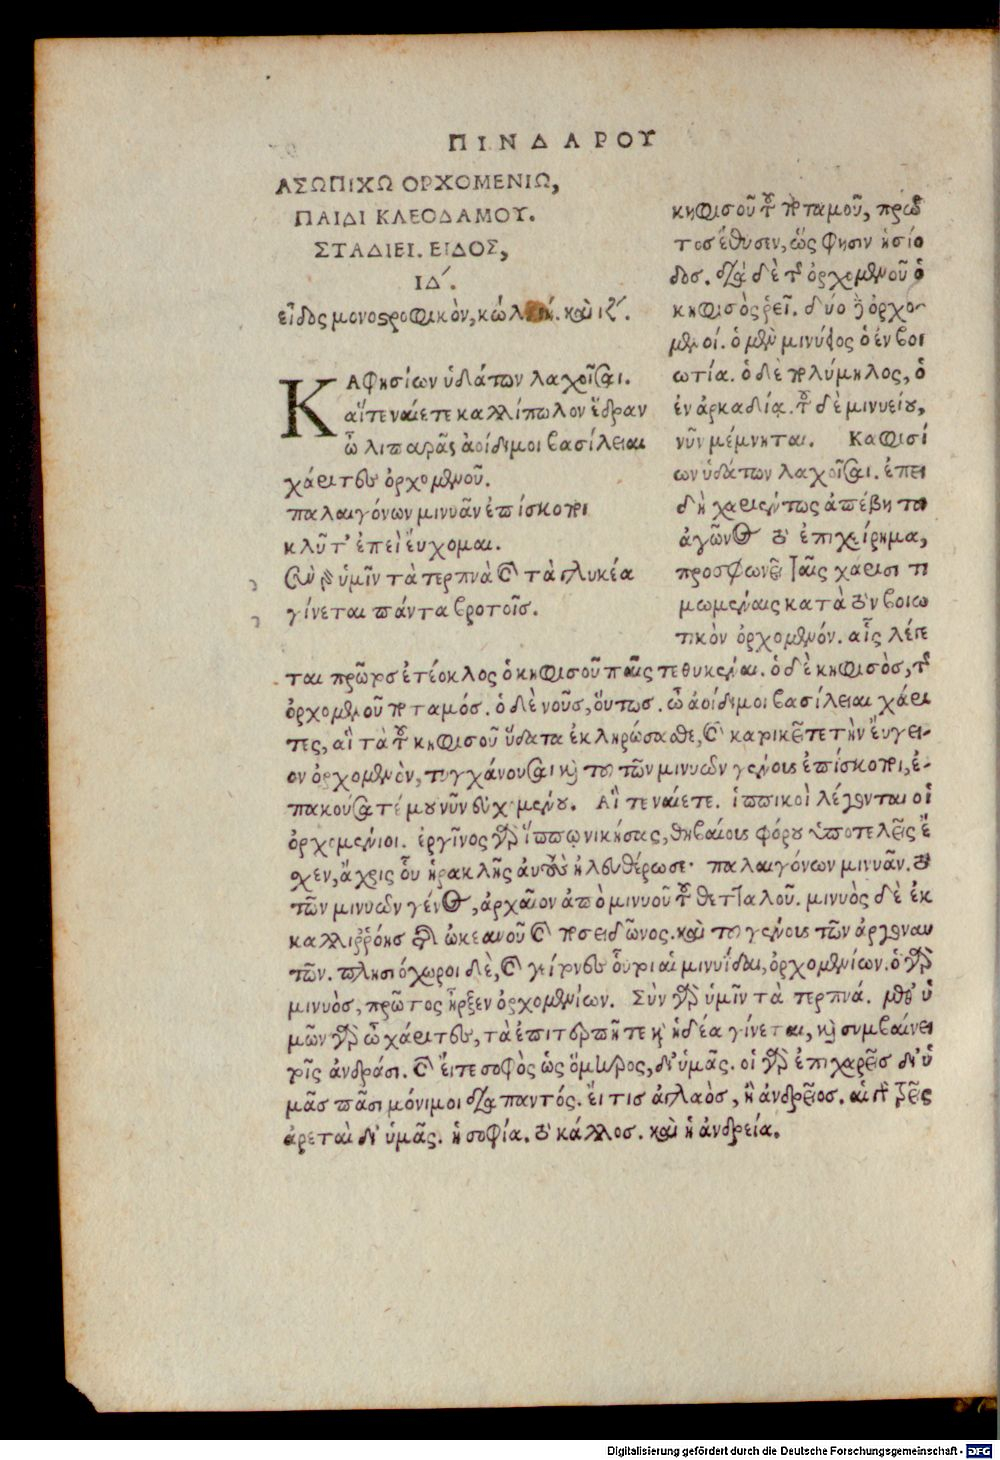 ΠΙΝΔΑΡΟΥ
ΑΣΩΠΙΧΩ ΟΡΧΟΜΕΝΙΩ,
ΠΑΙΔΙ ΚΛΕΟΔΑΜΟΥ.
ΣΤΑΔΙΕΙ. ΕΙΔΟΣ,
ΙΔ´.
εἶδος μονοστροφικὸν, κώλων. καὶ ιζ´.
ΚΑφησίων ὑδάτων λαχοῖσαι.
αἵτε ναίετε καλλίπωλον ἕδραν
ὦ λιπαρᾶς ἀοίδιμοι βασίλειαι
χάριτες ὀρχομενοῦ.
παλαιγόνων μινυᾶν ἐπίσκοποι
κλῦτ' ἐπεὶ εὔχομαι.
Σὺν γὰρ ὑμῖν τὰ τερπνὰ καὶ τὰ γλυκέα
γίνεται πάντα βροτοῖς.
κηφισοῦ τοῦ ποταμοῦ, πρῶ
τοσ ἔθυσεν, ὥς φησιν ἡσίο
δος. διὰ δὲ τοῦ ὀρχομενοῦ ὁ
κηφισὸς ῥεῖ. δύο δὲ ὀρχο-
μενοί. ὁ μὲν μινύϊος ὁ ἐν βοι
ωτία. ὁ δὲ πολύμηλος, ὁ
ἐν ἀρκαδίᾳ. τοῦ δὲ μινυείου,
νῦν μέμνηται. Καφισί
ων ὑδάτων λαχοῖσαι. ἐπει
δὴ χαριέντως ἀπέβη τοῦ
ἀγῶνος τὸ ἐπιχείρημα,
προσφωνεῖ ταῖς χάρισι τι
μωμέναις κατὰ τὸν βοιω
τικὸν ὀρχομενόν. αἷς λέγε
ται πρῶτος ἐτέοκλος ὁ κηφισοῦ παῖς τεθυκέναι. ὁ δὲ κηφισὸς, τοῦ
ὀρχομενοῦ ποταμός. ὁ δὲ νοῦς, οὕτως. ὦ ἀοίδιμοι βασίλειαι χάρι
τες, αἳ τὰ τοῦ κηφισοῦ ὕδατα ἐκληρώσασθε, καὶ κατοικεῖτε τὴν εὔγει-
ον ὀρχομενὸν, τυγχάνουσαι καὶ τοῦ τῶν μινυῶν γένους ἐπίσκοποι, ἐ-
πακούσατέ μου νῦν εὐχομένου. Αἵ τε ναίετε. ἱππικοὶ λέγονται οἱ
ὀρχομένιοι. ἐργῖνος γὰρ ἵππῳ νικήσας, θηβαίους φόρου ὑποτελεῖς ἔ
χεν, ἄχρις οὗ ἡρακλῆς αὐτοὺς ἠλευθέρωσε· παλαιγόνων μινυᾶν. τὸ
τῶν μινυῶν γένος, ἀρχαῖον ἀπὸ μινυοῦ τοῦ θετταλοῦ. μινυὸς δὲ ἐκ
καλλιῤῥόης τῆς ὠκεανοῦ καὶ ποσειδῶνος. καὶ τοῦ γένους τῶν ἀργοναυ
τῶν. πλησιόχωροι δὲ, καὶ γείτονες οὗτοι αἱ μινυΐδαι, ὀρχομενίων. ὁ γὰρ
μινυὸς, πρῶτος ἦρξεν ὀρχομενίων. Σὺν γὰρ ὑμῖν τὰ τερπνά. μεθ' ὑ
μῶν γὰρ ὦ χάριτες, τὰ ἐπιτερπῆ τε καὶ ἡδέα γίνεται, καὶ συμβαίνει
τοῖς ἀνδράσι. καὶ εἴτε σοφὸς ὡς ὅμηρος, δι' ὑμᾶς. οἱ γὰρ ἐπιχαρεῖς δι' ὑ
μᾶς πᾶσι μόνιμοι διὰ παντός. εἴ τις ἀγλαὸς, ἢ ἀνδρεῖος. αἱ γὰρ τρεῖς
ἀρεταὶ δι' ὑμᾶς. ἡ σοφία. τὸ κάλλος. καὶ ἡ ἀνδρεία.
Digitalisierung gefördert durch die Deutsche Forschungsgemeinschaft - DFG